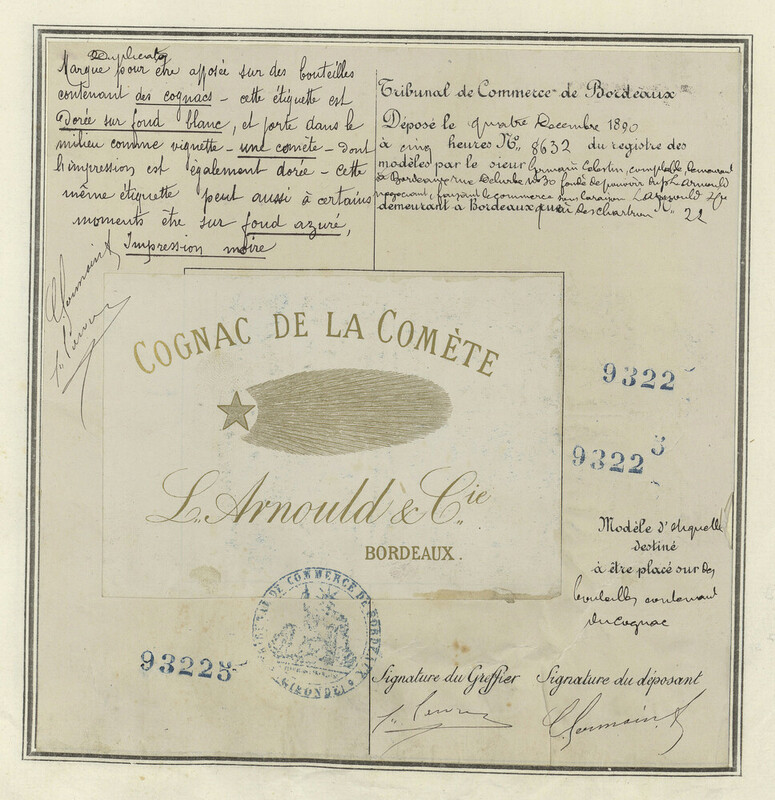 Duplicata
Marque pour être apposée sur des bouteilles
contenant des cognacs – cette étiquette est
Dorée sur fond blanc, et porte dans le
milieu comme vignette – une comète – dont
l'impression est également dorée – cette
même étiquette peut aussi à certains
moments être sur fond azuré,
Impression noire
Tribunal de Commerce de Bordeaux
Déposé le quatre Decembre 1890
à cinq heures No. 8632 du registre des
modèles par le sieur Germain Celestin, comptable, demeurant
à Bordeaux rue No 30 fondé de pouvoir du sr L. Arnould
négociant, faisant le commerce sous la raison L. Arnould & Cie
demeurant à Bordeaux, quai des Chartrons No. 22
COGNAC DE LA COMÈTE
L. Arnould & Cie
BORDEAUX.
9322
9322 5
Modèle d'étiquette
destiné
à être placé sur des
bouteilles contenant
du cognac
TRIBUNAL DE COMMERCE DE BORDEAUX
(GIRONDE)
93225
Signature du Greffier
Signature du déposant
C. Germain